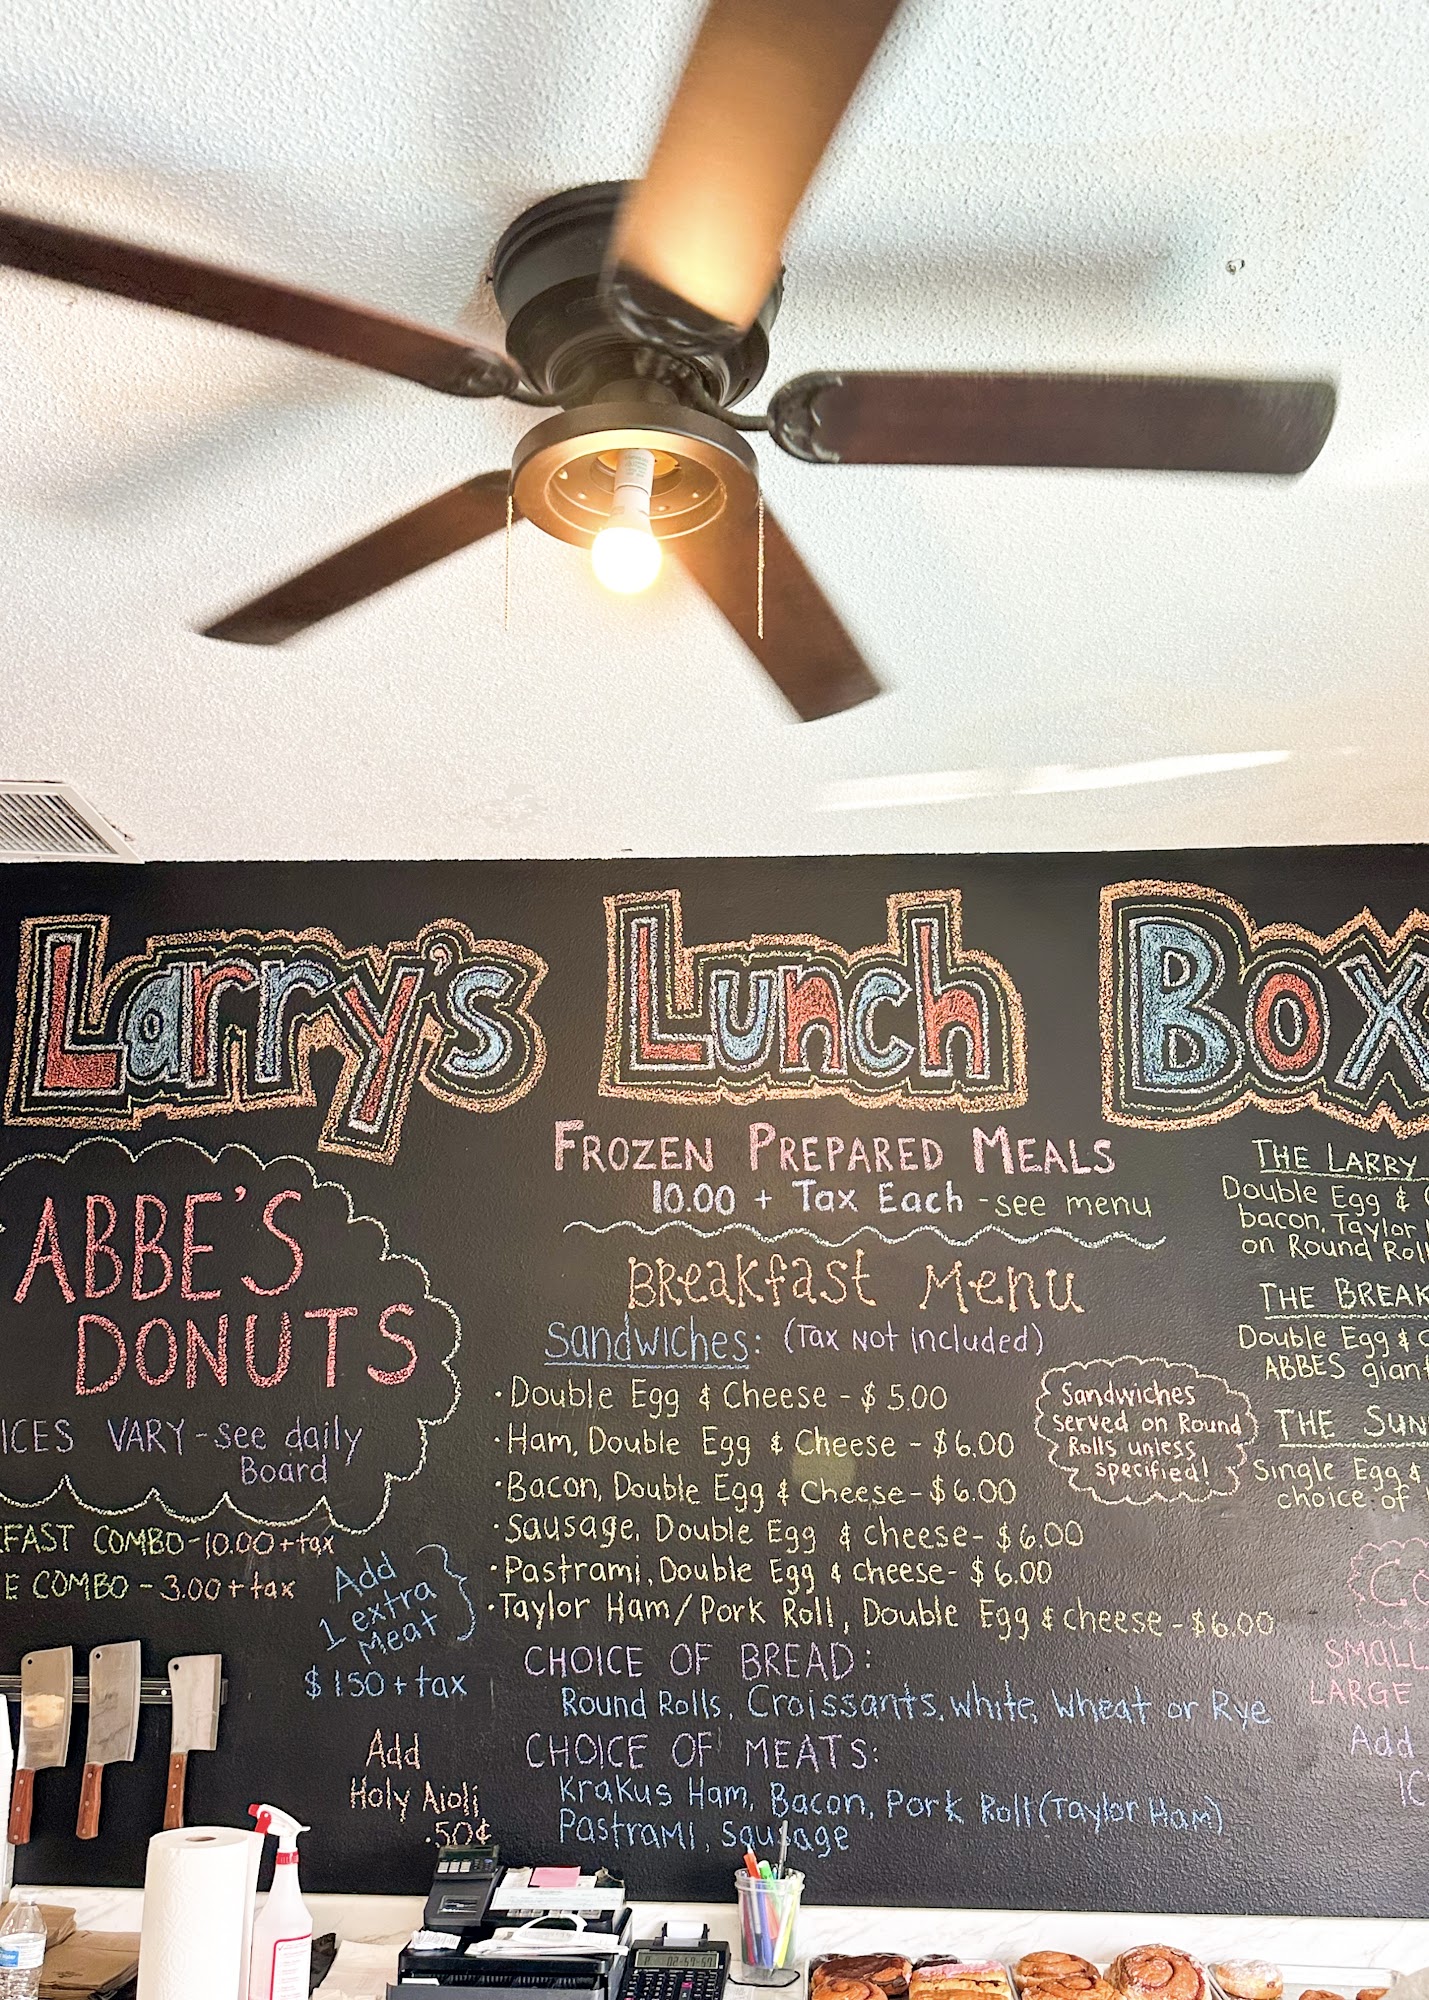 Larry's Lunch Box
ABBE'S
DONUTS
VARY - see daily
Board
COMBO - 10.00 + tax
COMBO - 3.00 + tax
Add
1 extra
Meat
$1.50 + tax
Add
Holy Aioli
.50¢
FROZEN PREPARED MEALS
10.00 + Tax Each - see menu
Breakfast Menu
Sandwiches: (Tax Not included)
• Double Egg & Cheese - $5.00
• Ham, Double Egg & Cheese - $6.00
• Bacon, Double Egg & Cheese - $6.00
• Sausage, Double Egg & cheese - $6.00
• Pastrami, Double Egg & cheese - $6.00
• Taylor Ham/Pork Roll, Double Egg & cheese - $6.00
CHOICE OF BREAD:
Round Rolls, Croissants, White, Wheat or Rye
CHOICE OF MEATS:
Krakus Ham, Bacon, Pork Roll (Taylor Ham)
Pastrami, Sausage
Sandwiches
served on Round
Rolls unless
specified!
THE LARRY
Double Egg &
bacon, Taylor
on Round
THE
Double Egg &
ABBES
THE
Single Egg &
choice of
SMALL
LARGE
Add